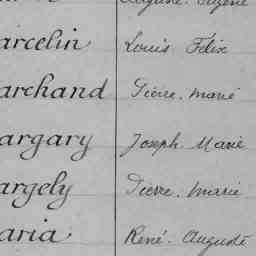 Auguste Eugène
arcelin Louis Félix
archand Pierre. Marie
argary Joseph. Marie
argely Pierre. Marie
aria René. Auguste